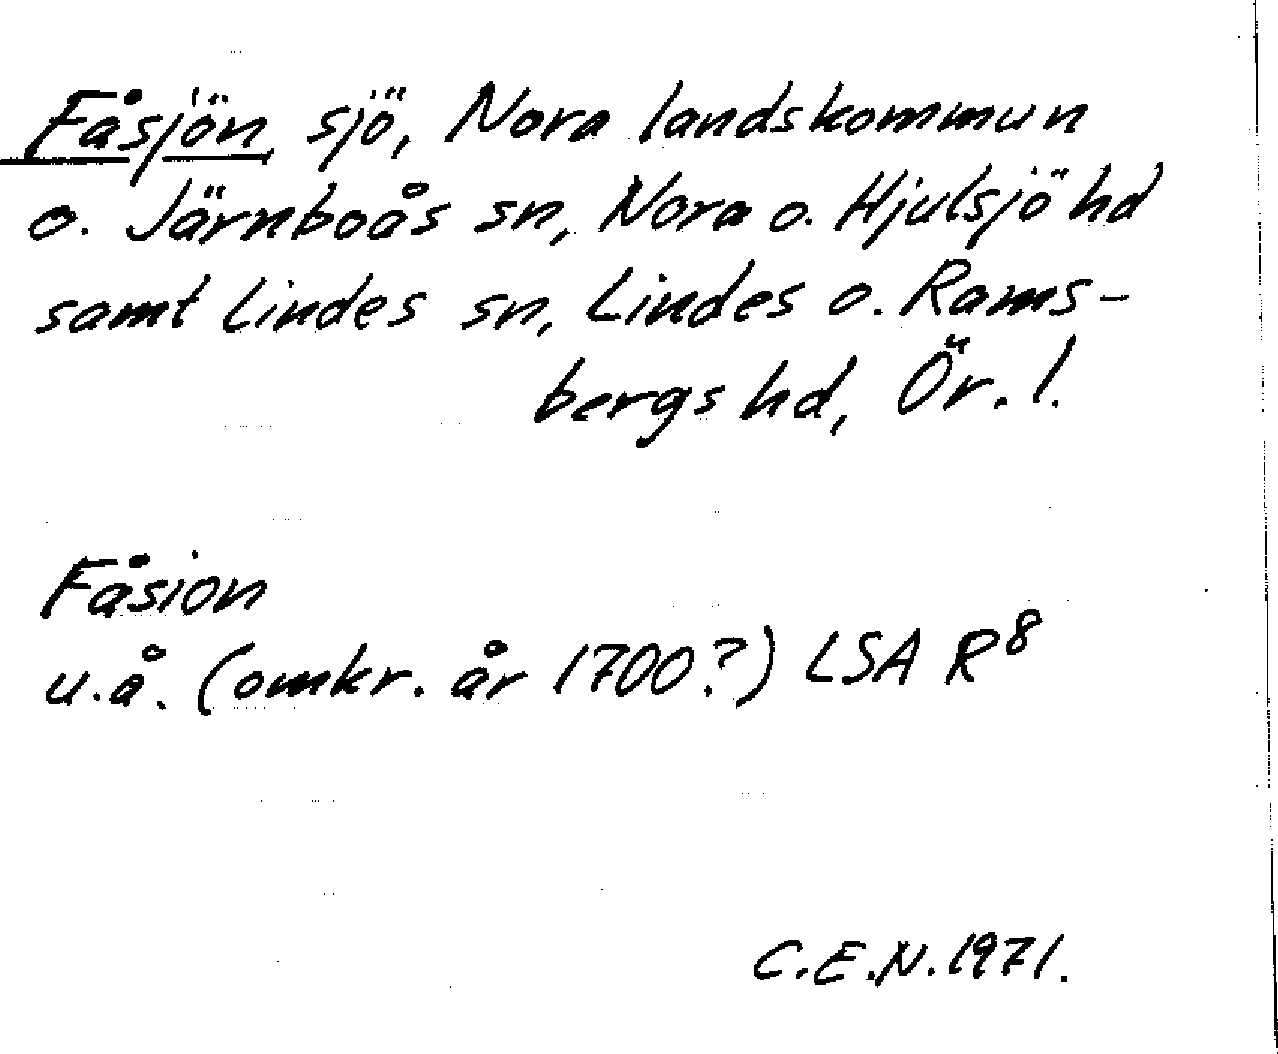 Fåsjön, sjö, Nora landskommun
o. Järnboås sn, Nora o. Hjulsjö hd
samt Lindes sn, Lindes o. Rams-
bergs hd, Ör. l.
Fåsion
u.å. (omkr. år 1700?) LSA R8
C.E.N. 1971.